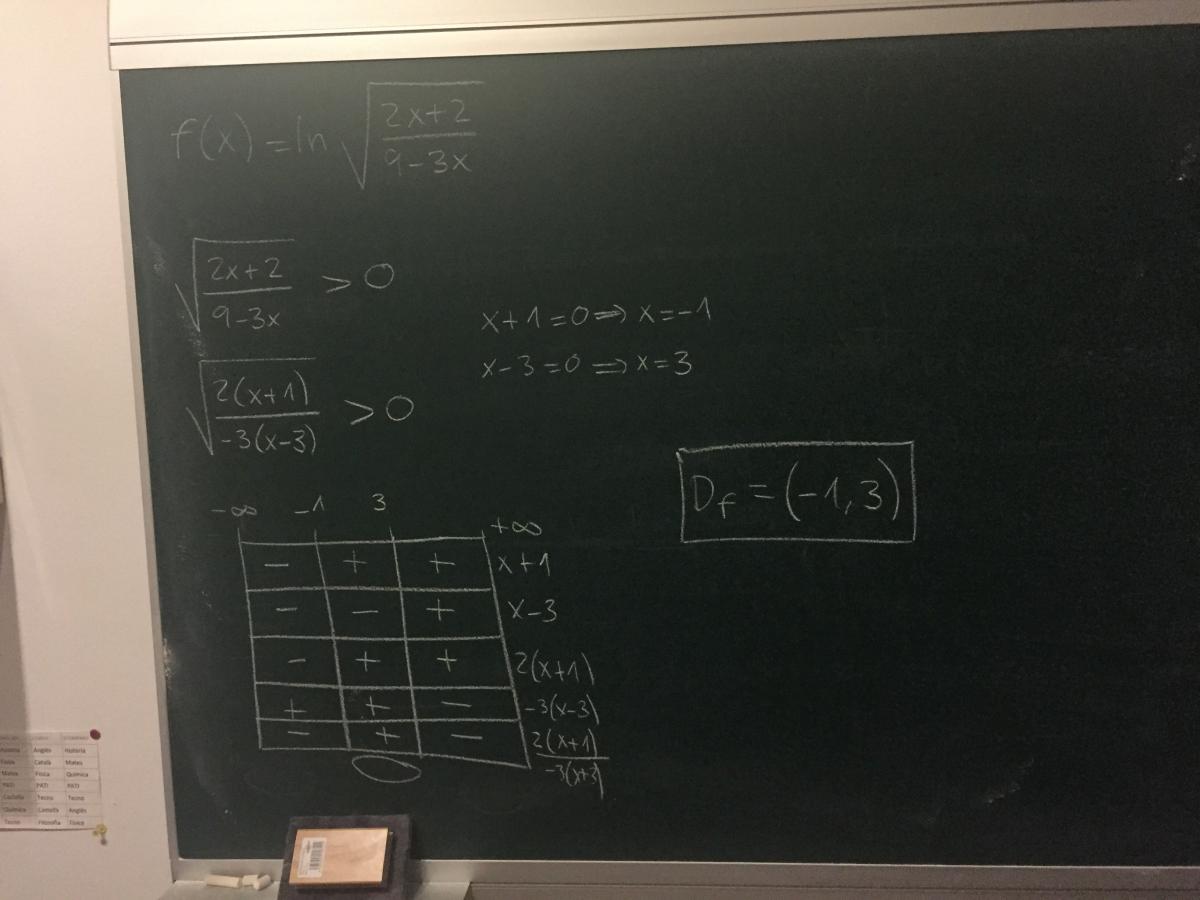 f(x) = ln √((2x+2)/(9-3x))
√((2x+2)/(9-3x)) > 0
x+1=0 ⇒ x=-1
x-3=0 ⇒ x=3
√(2(x+1)/(-3(x-3))) > 0
D_f = (-1, 3)
-∞ -1 3 +∞
- + + x+1
- - + x-3
- + + 2(x+1)
+ + - -3(x-3)
- + - 2(x+1)/(-3(x+3)
Anglès Història
Física Català Mates
Mates Física Química
PATI PATI PATI
Castellà Tecno Tecno
Química Castellà Anglès
Tecno Filosofia Física